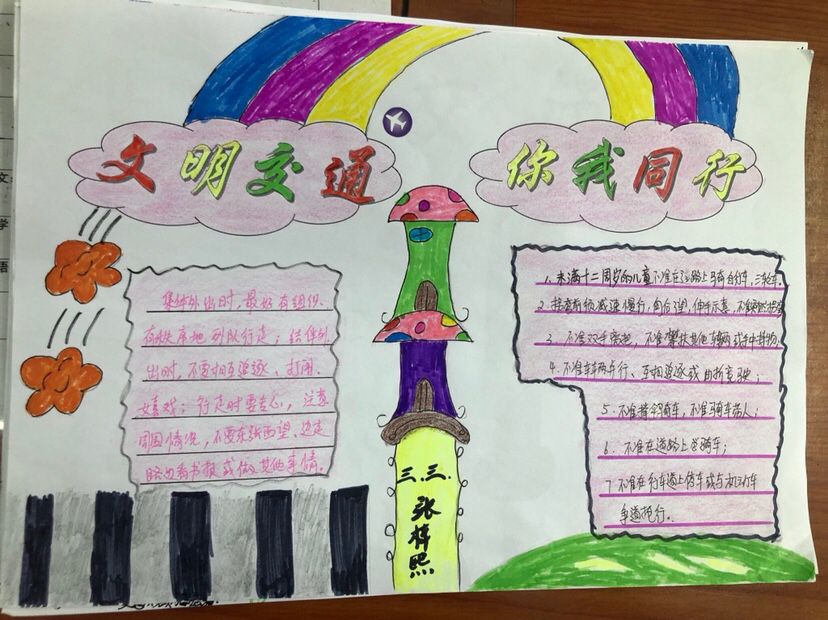 文明交通
你我同行
集体外出时,最好有组织、
有秩序地列队行走;结伴外
出时,不要相互追逐、打闹、
嬉戏;行走时要专心,注意
周围情况,不要东张西望、边走
路边看书报或做其他事情。
1、未满十二周岁的儿童不准在道路上骑自行车,三轮车.
2、拐弯前须减速慢行,向后望,伸手示意,不准突然拐弯
3、不准双手离把,不准攀扶其他车辆或手中持物.
4、不准车辆并行、互相追逐或曲折竞驶;
5、不准撑伞骑车,不准骑车带人;
6、不准在道路上学骑车;
7、不准在行车道上停车或与机动车
争道抢行。
三.三.
张梓熙
文
学
语